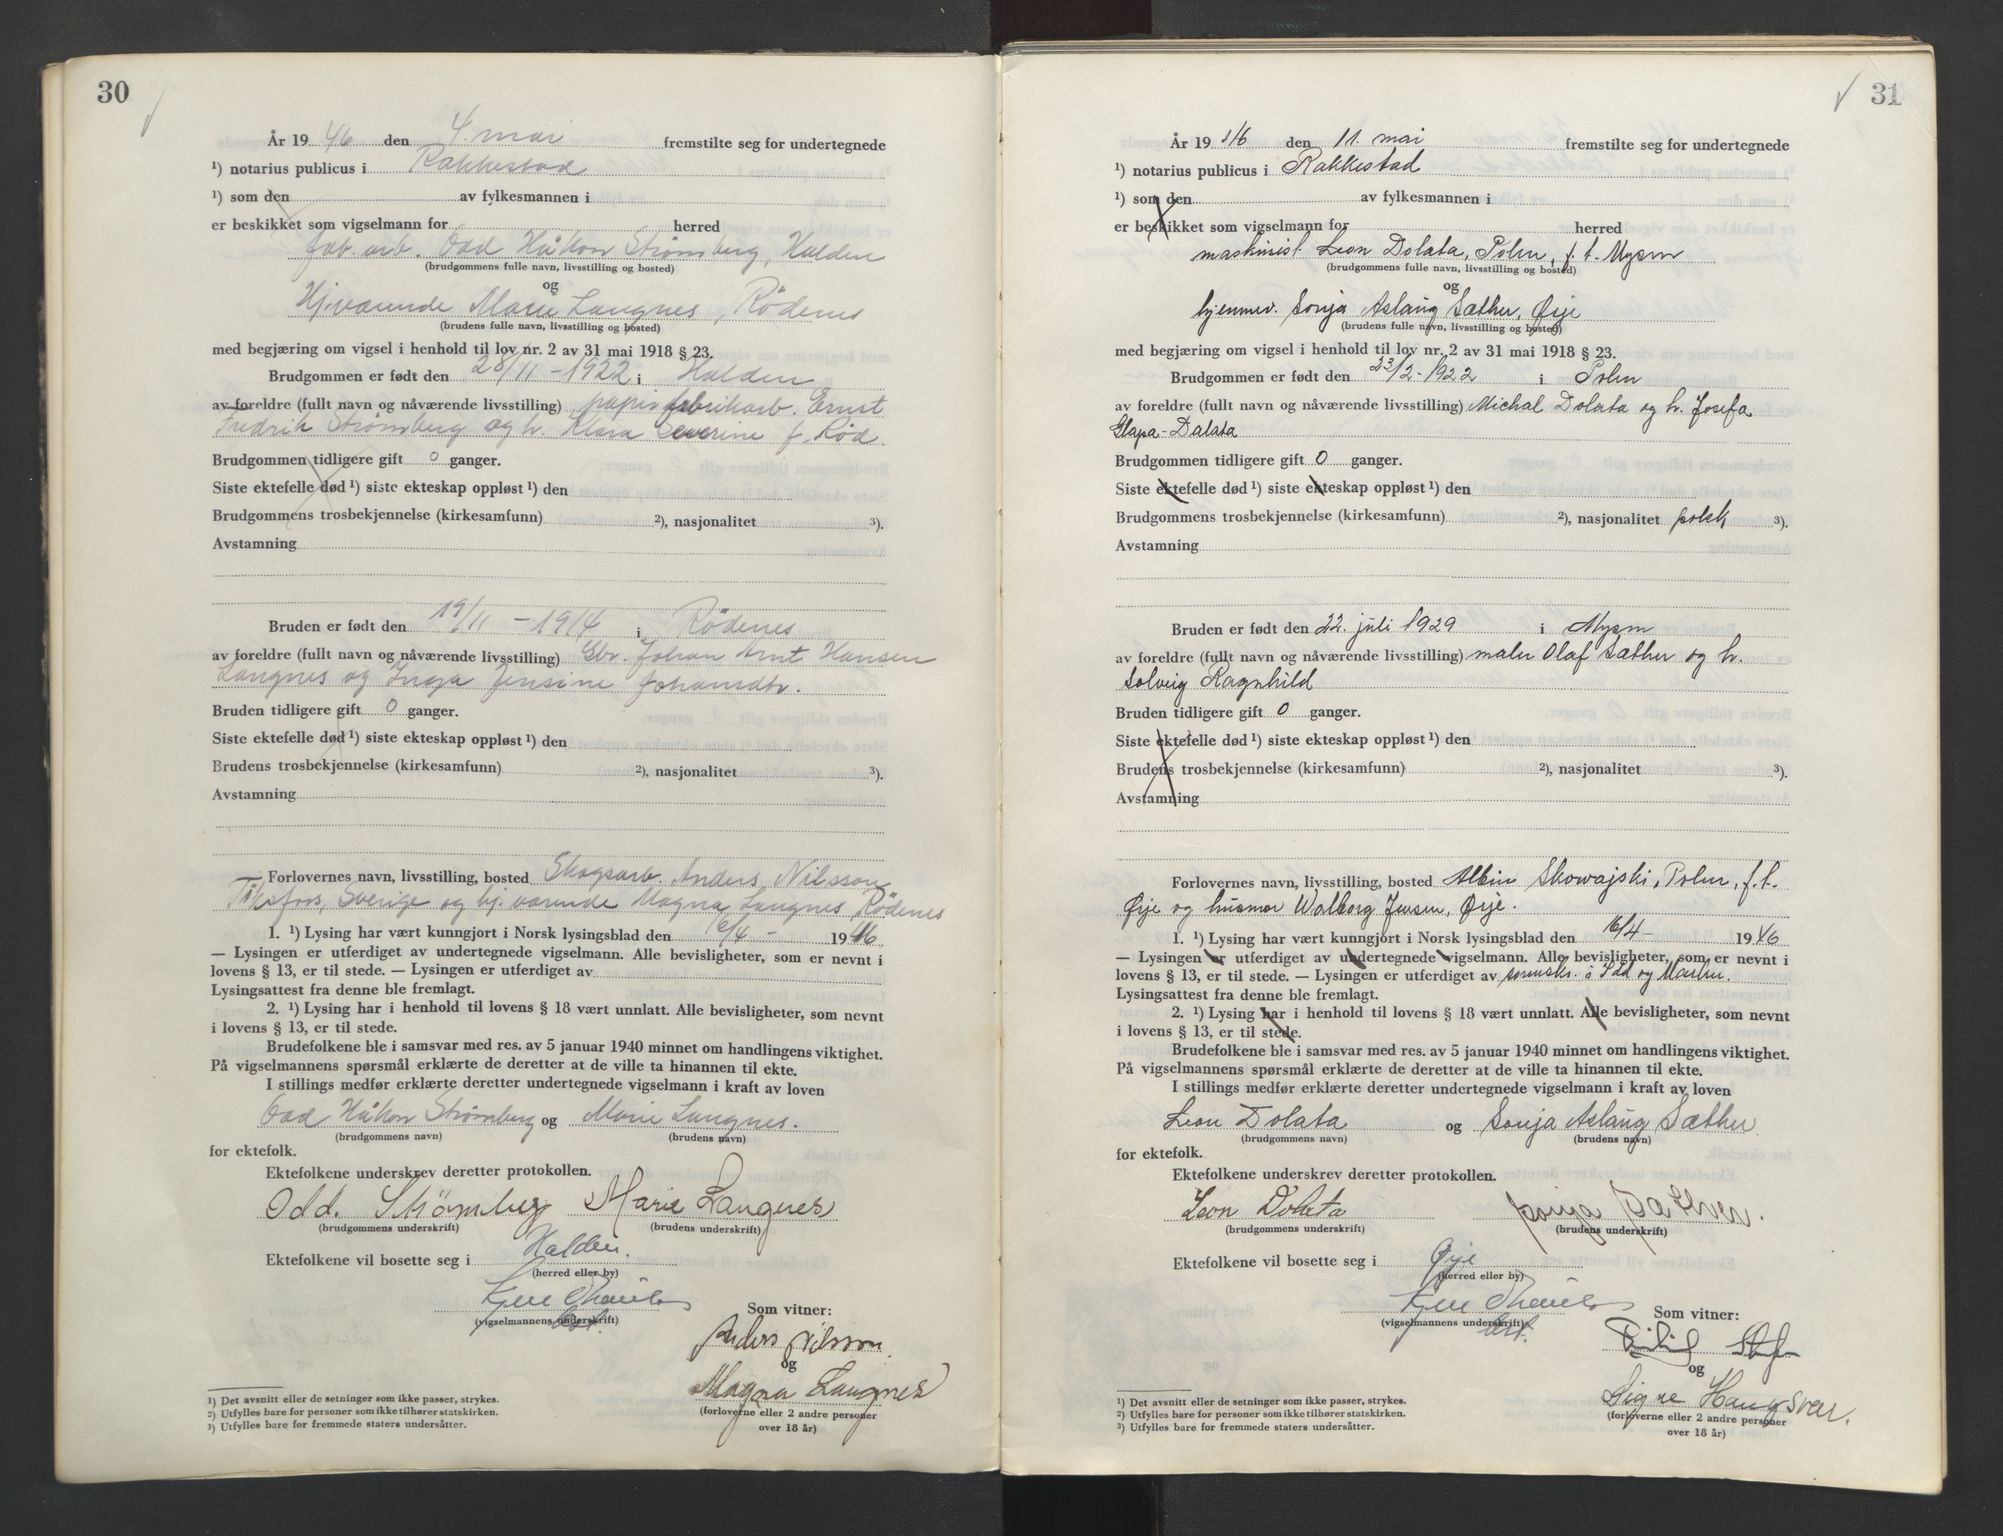 30
År 19 46 den 4. mai fremstilte seg for undertegnede
¹) notarius publicus i Rakkestad
¹) som den av fylkesmannen i
er beskikket som vigselmann for herred
fab. arb. Odd Håkon Strømberg, Halden
(brudgommens fulle navn, livsstilling og bosted)
og
Hj.værende Marie Langnes, Rödenes
(brudens fulle navn, livsstilling og bosted)
med begjæring om vigsel i henhold til lov nr. 2 av 31 mai 1918 § 23.
Brudgommen er født den 28/11 - 1922 i Halden
av foreldre (fullt navn og nåværende livsstilling) papirfabrikarb. Ernst
Fredrik Strømberg og h. Klara Severine f. Röd.
Brudgommen tidligere gift 0 ganger.
Siste ektefelle død ¹) siste ekteskap oppløst ¹) den
Brudgommens trosbekjennelse (kirkesamfunn) ²), nasjonalitet ³).
Avstamning
Bruden er født den 19/11 - 1914 i Rödenes
av foreldre (fullt navn og nåværende livsstilling) Gbr. Johan Arnt Hansen
Langnes og Inga Jensine Johansdtr.
Bruden tidligere gift 0 ganger.
Siste ektefelle død ¹) siste ekteskap oppløst ¹) den
Brudens trosbekjennelse (kirkesamfunn) ²), nasjonalitet ³).
Avstamning
Forlovernes navn, livsstilling, bosted Skogsarb. Anders Nilsson
Töcksfors, Sverige og hj.værende Magna Langnes, Rödenes
1. ¹) Lysing har vært kunngjort i Norsk lysingsblad den 16/4 - 19 46
— Lysingen er utferdiget av undertegnede vigselmann. Alle bevisligheter, som er nevnt i
lovens § 13, er til stede. — Lysingen er utferdiget av
Lysingsattest fra denne ble fremlagt.
2. ¹) Lysing har i henhold til lovens § 18 vært unnlatt. Alle bevisligheter, som nevnt
i lovens § 13, er til stede.
Brudefolkene ble i samsvar med res. av 5 januar 1940 minnet om handlingens viktighet.
På vigselmannens spørsmål erklærte de deretter at de ville ta hinannen til ekte.
I stillings medfør erklærte deretter undertegnede vigselmann i kraft av loven
Odd Håkon Strømberg og Marie Langnes.
(brudgommens navn) (brudens navn)
for ektefolk.
Ektefolkene underskrev deretter protokollen.
Odd. Strömberg Marie Langnes
(brudgommens underskrift) (brudens underskrift)
Ektefolkene vil bosette seg i Halden.
(herred eller by)
(vigselmannens underskrift)
Som vitner:
Anders Nilsson.
og
Magna Langnes
(forloverne eller 2 andre personer
over 18 år)
¹) Det avsnitt eller de setninger som ikke passer, strykes.
²) Utfylles bare for personer som ikke tilhører statskirken.
³) Utfylles bare for fremmede staters undersåtter.
31
År 19 46 den 11. mai fremstilte seg for undertegnede
¹) notarius publicus i Rakkestad
¹) som den av fylkesmannen i
er beskikket som vigselmann for herred
maskinist Leon Dolata, Polen, f.t. Mysen
(brudgommens fulle navn, livsstilling og bosted)
og
hjemmev. Sonja Aslaug Sæther, Ørje
(brudens fulle navn, livsstilling og bosted)
med begjæring om vigsel i henhold til lov nr. 2 av 31 mai 1918 § 23.
Brudgommen er født den 23/2 - 1922 i Polen
av foreldre (fullt navn og nåværende livsstilling) Michal Dolata og h. Josefa
Glapa-Dalata
Brudgommen tidligere gift 0 ganger.
Siste ektefelle død ¹) siste ekteskap oppløst ¹) den
Brudgommens trosbekjennelse (kirkesamfunn) ²), nasjonalitet polsk ³).
Avstamning
Bruden er født den 22. juli 1929 i Mysen
av foreldre (fullt navn og nåværende livsstilling) maler Olaf Sæther og h.
Solveig Ragnhild
Bruden tidligere gift 0 ganger.
Siste ektefelle død ¹) siste ekteskap oppløst ¹) den
Brudens trosbekjennelse (kirkesamfunn) ²), nasjonalitet ³).
Avstamning
Forlovernes navn, livsstilling, bosted Albin Skowajski, Polen, f.t.
Ørje og husmor Walborg Jensen, Ørje.
1. ¹) Lysing har vært kunngjort i Norsk lysingsblad den 16/4 - 19 46
— Lysingen er utferdiget av undertegnede vigselmann. Alle bevisligheter, som er nevnt i
lovens § 13, er til stede. — Lysingen er utferdiget av sorenskr. i Idd og Marker.
Lysingsattest fra denne ble fremlagt.
2. ¹) Lysing har i henhold til lovens § 18 vært unnlatt. Alle bevisligheter, som nevnt
i lovens § 13, er til stede.
Brudefolkene ble i samsvar med res. av 5 januar 1940 minnet om handlingens viktighet.
På vigselmannens spørsmål erklærte de deretter at de ville ta hinannen til ekte.
I stillings medfør erklærte deretter undertegnede vigselmann i kraft av loven
Leon Dolata og Sonja Aslaug Sæther
(brudgommens navn) (brudens navn)
for ektefolk.
Ektefolkene underskrev deretter protokollen.
Leon Dolata Sonja Sæther.
(brudgommens underskrift) (brudens underskrift)
Ektefolkene vil bosette seg i Ørje
(herred eller by)
(vigselmannens underskrift)
Som vitner:
og
Signe Haugsvær.
(forloverne eller 2 andre personer
over 18 år)
¹) Det avsnitt eller de setninger som ikke passer, strykes.
²) Utfylles bare for personer som ikke tilhører statskirken.
³) Utfylles bare for fremmede staters undersåtter.